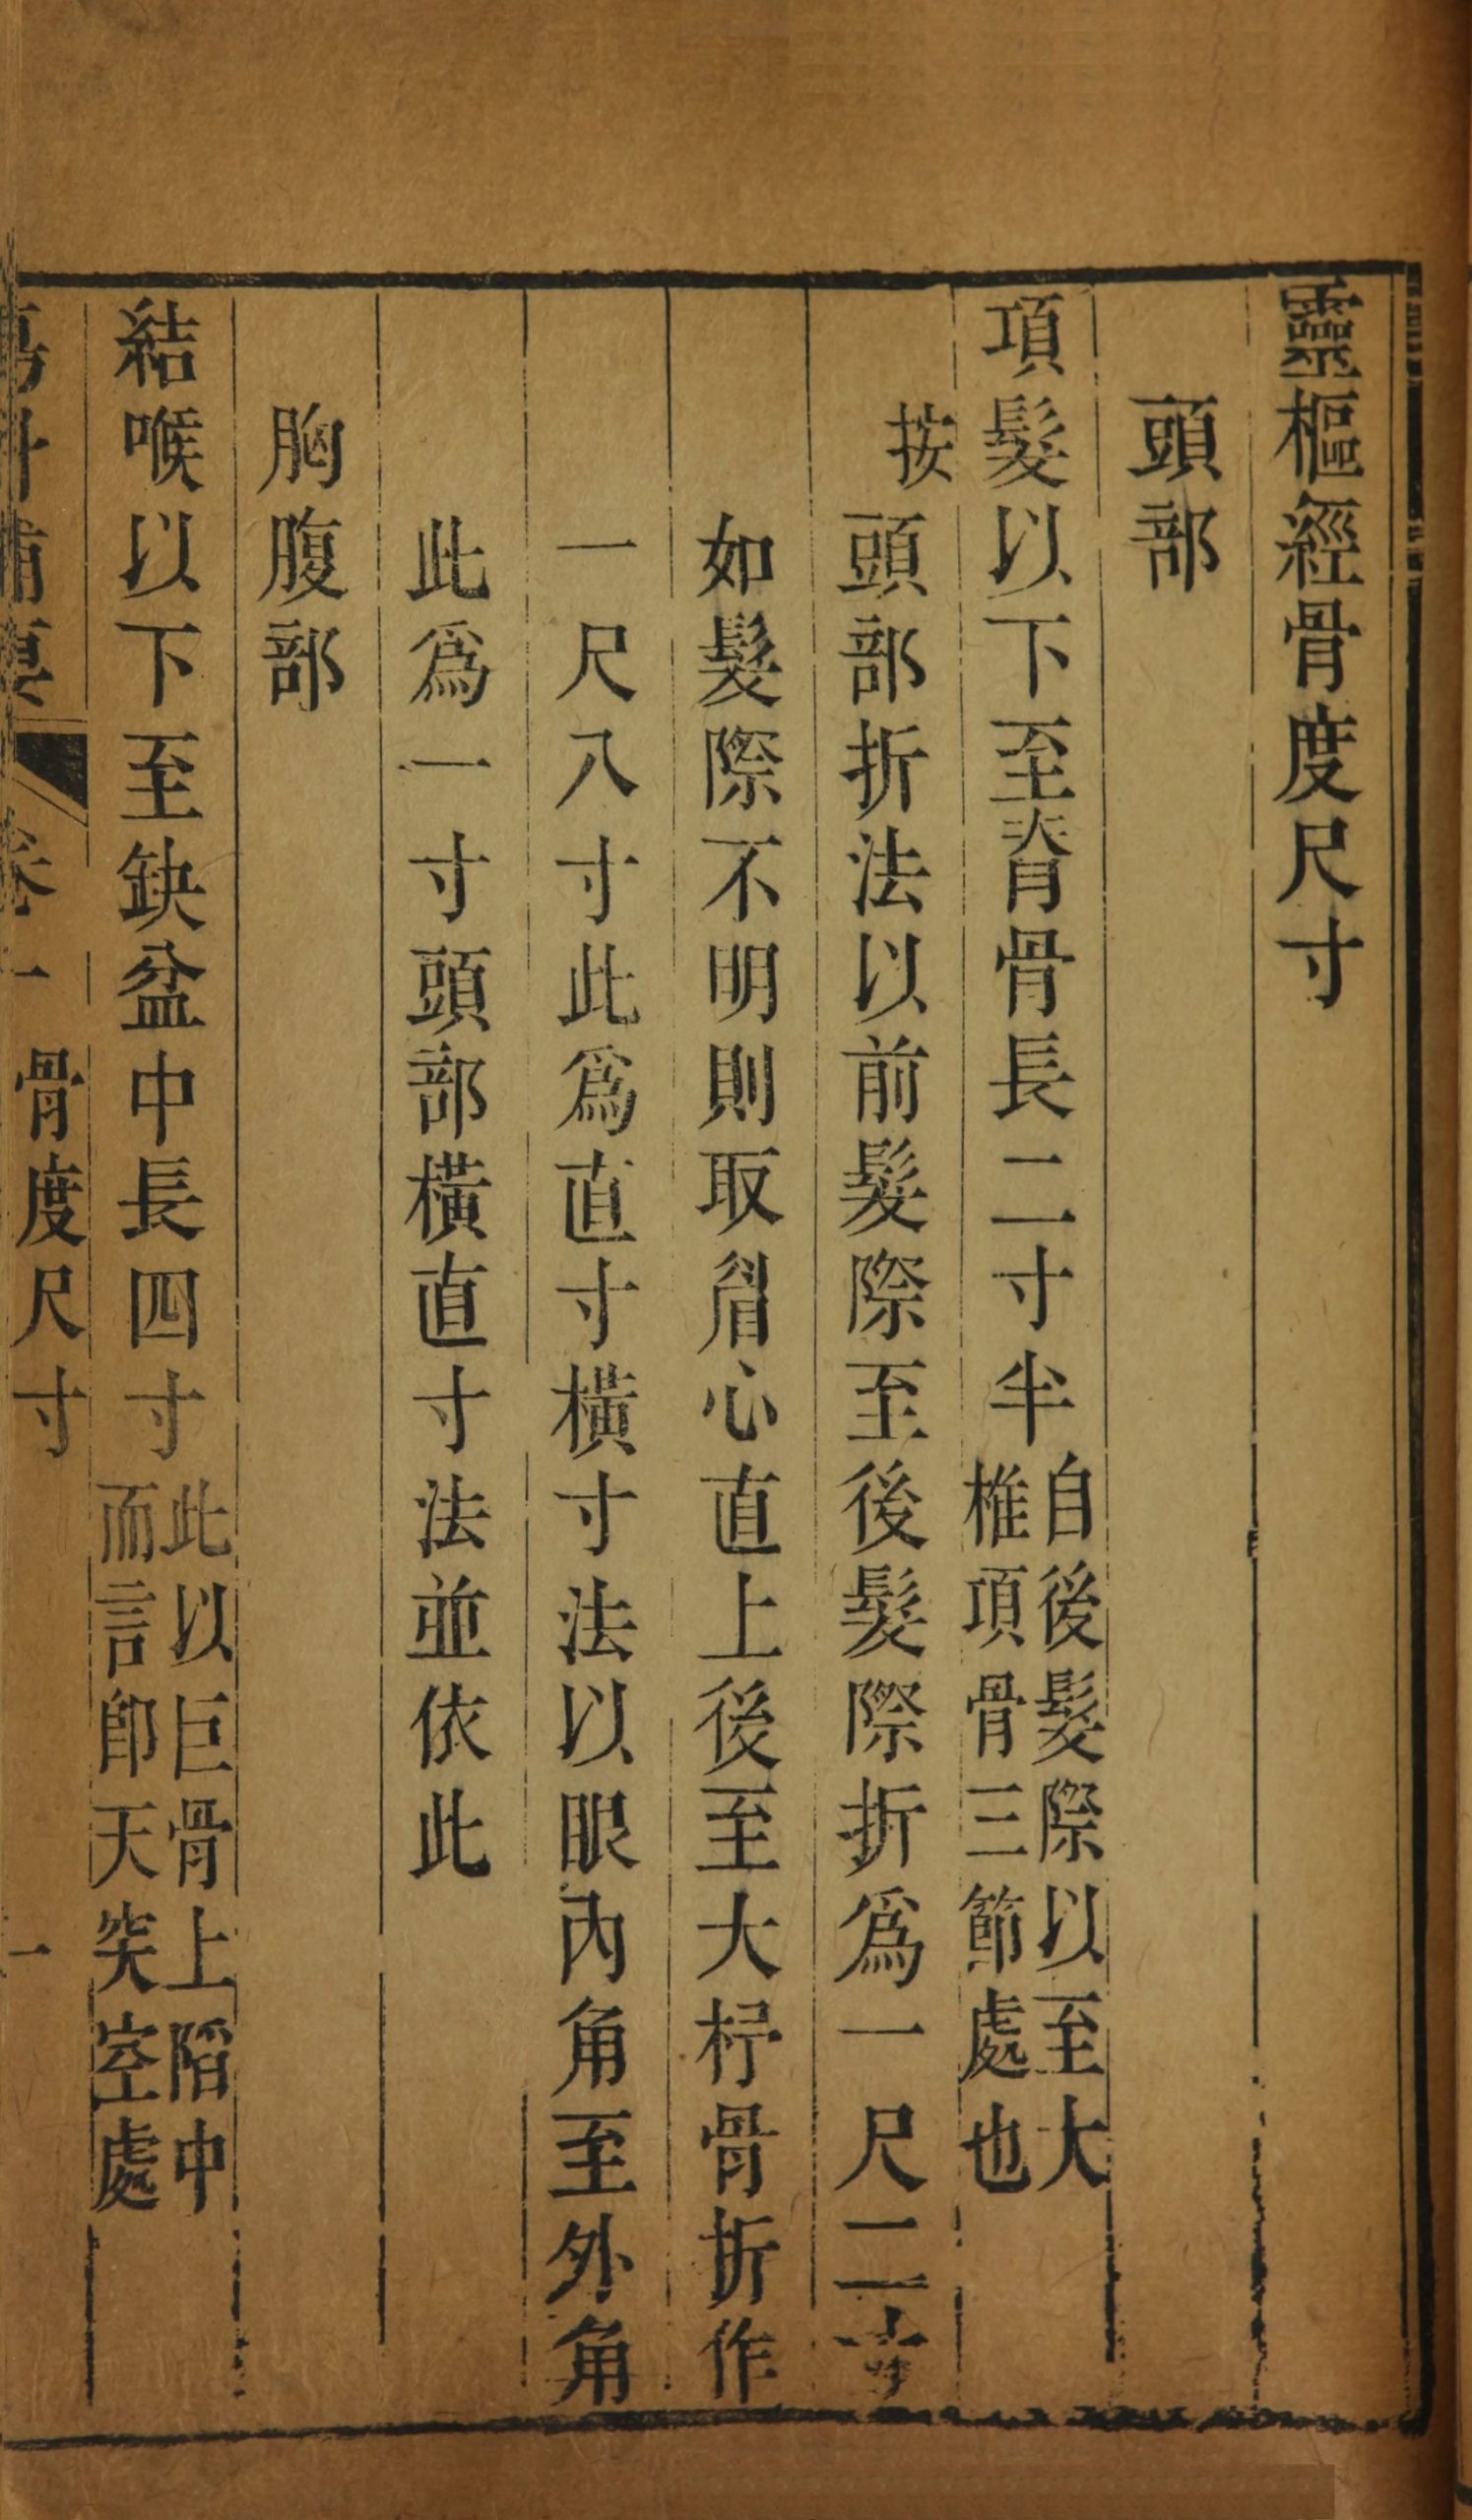 靈樞經骨度尺寸
頭部
項髮以下至脊骨長二寸半自後髮際以至大椎項骨三節處也
按頭部折法以前髮際至後髮際折爲一尺二寸
如髮際不明則取眉心直上後至大杼骨折作
一尺八寸此爲直寸橫寸法以眼內角至外角
此爲一寸頭部橫直寸法並依此
胸腹部
結喉以下至缺盆中長四寸此以巨骨上陷中而言卽天突空處
卷一 骨度尺寸 一